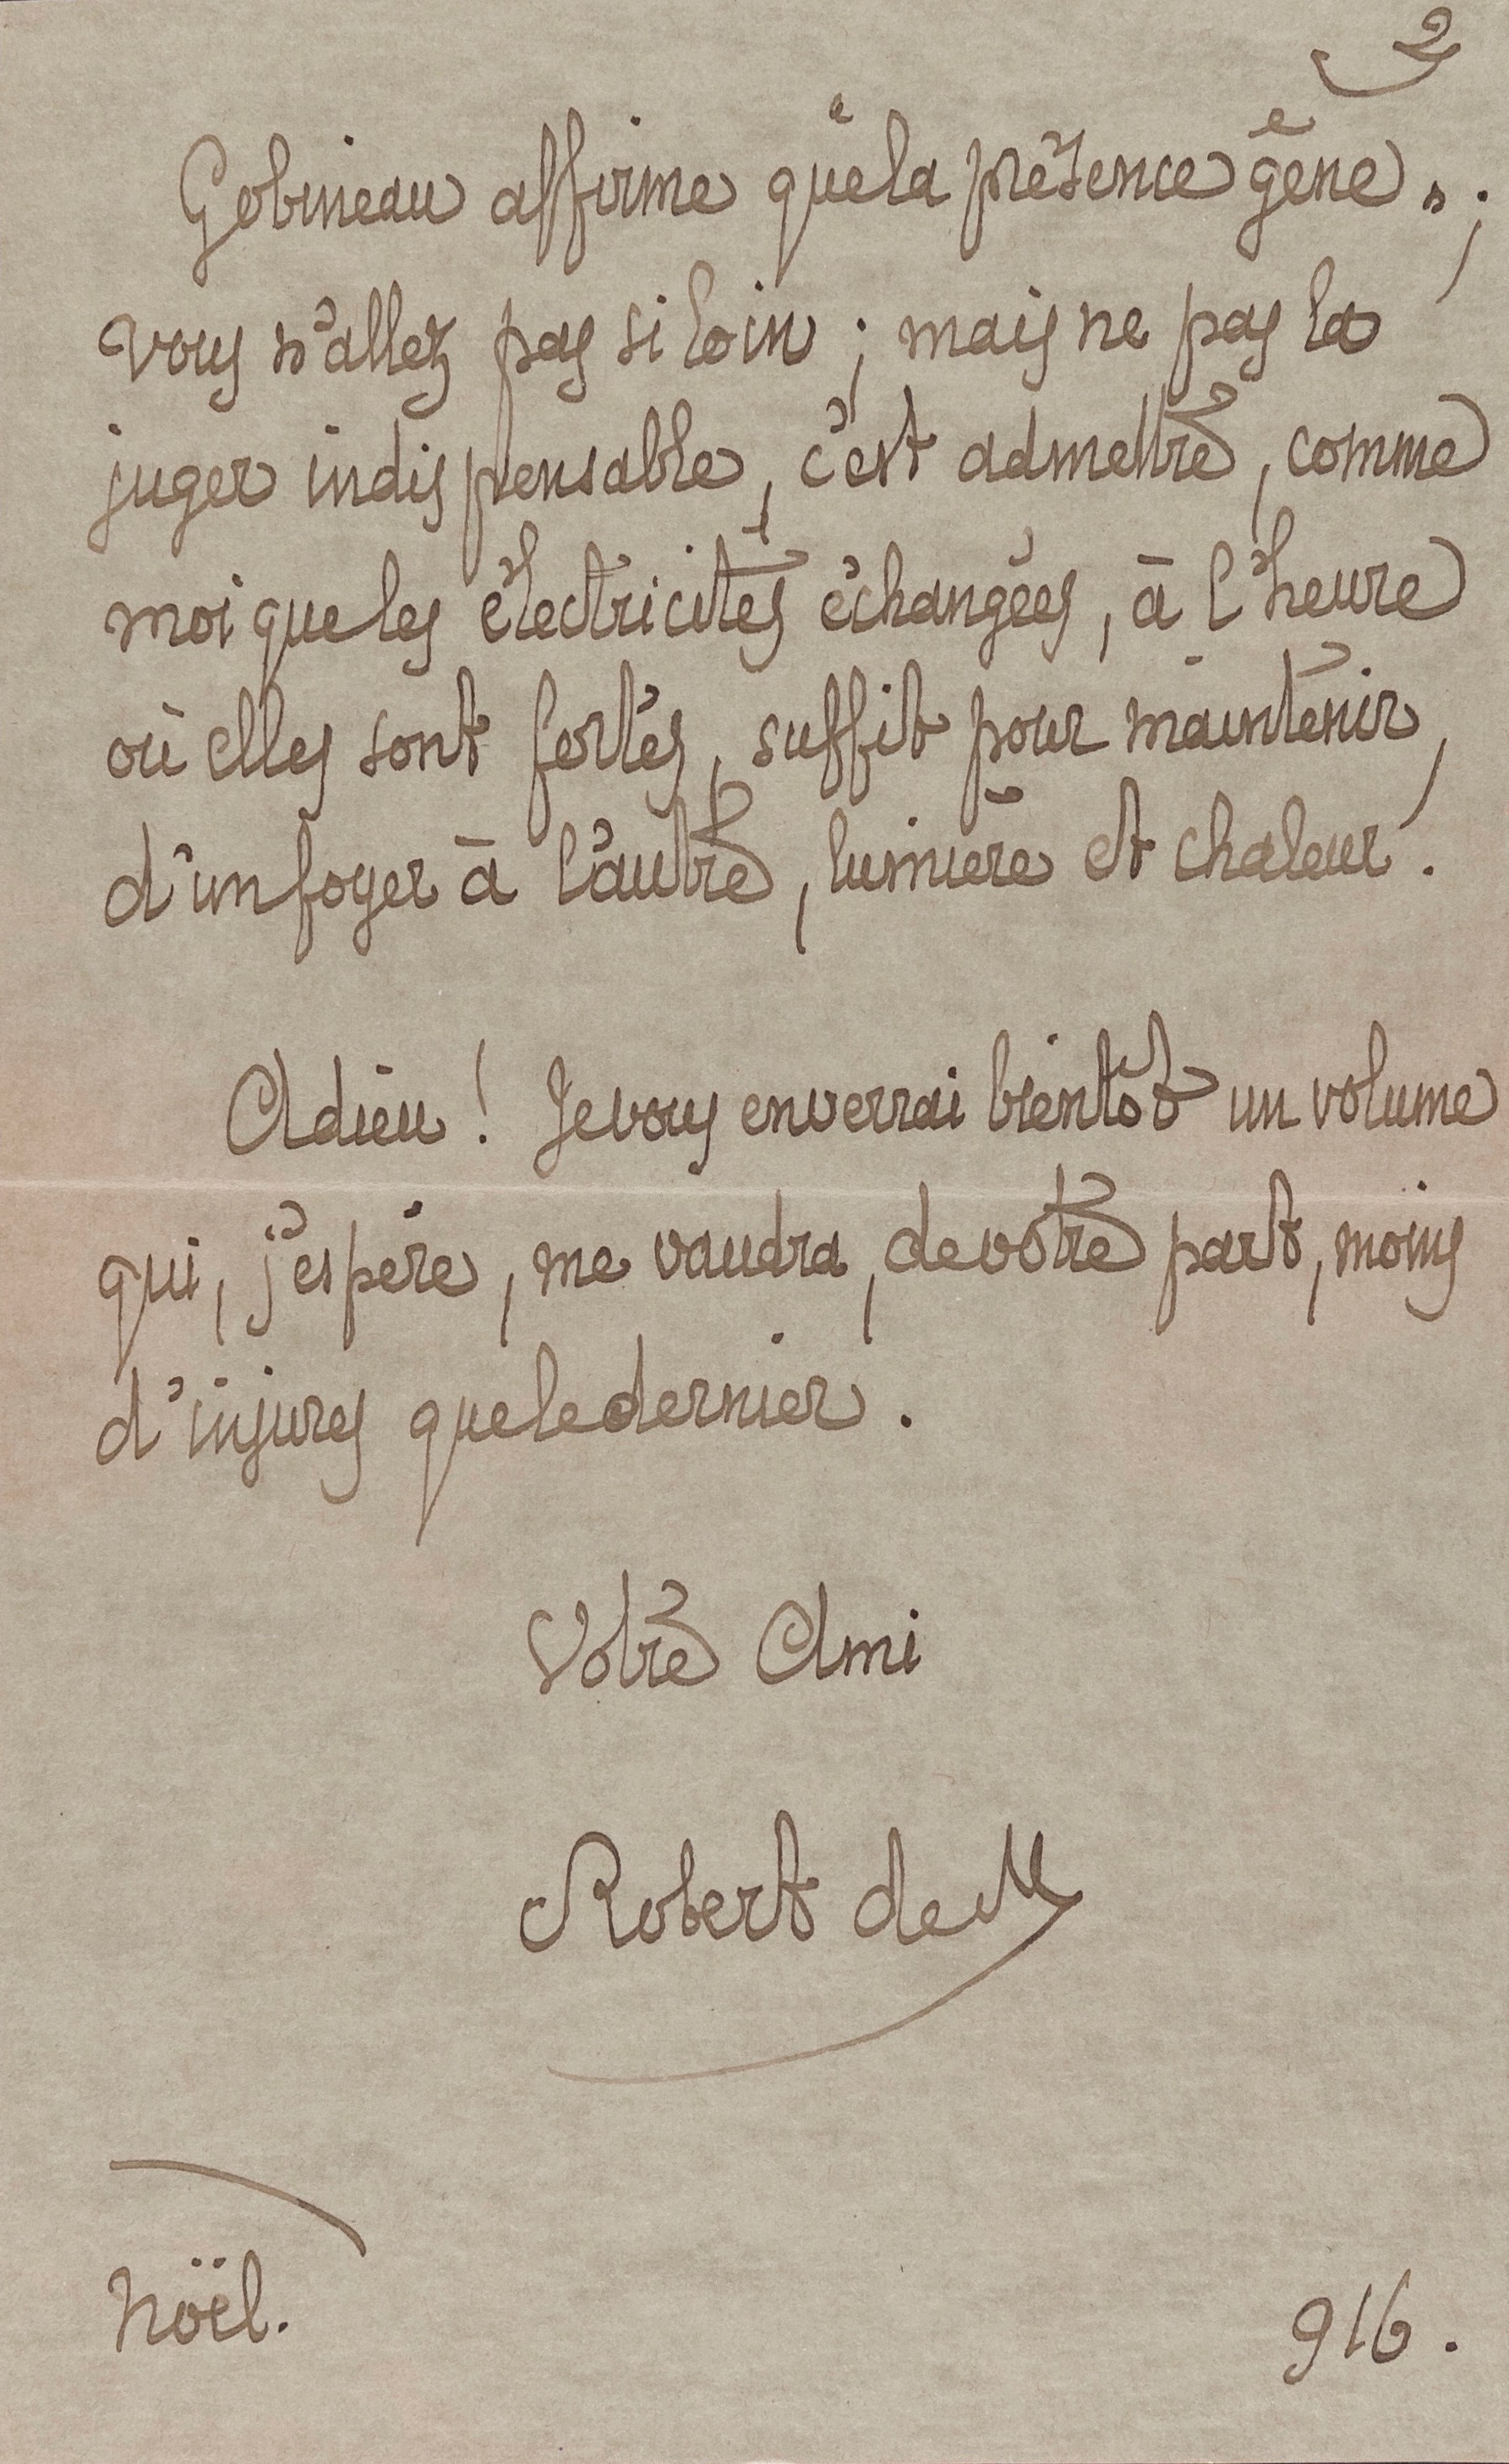 2
Gobineau affirme que la présence gêne » ;
vous n'allez pas si loin ; mais ne pas la
juger indispensable, c'est admettre, comme
moi que les électricités échangées, à l'heure
où elles sont fortes, suffit pour maintenir,
d'un foyer à l'autre, lumière et chaleur.
Adieu ! Je vous enverrai bientôt un volume
qui, j'espère, me vaudra, de votre part, moins
d'injures que le dernier.
Votre Ami
Robert de M
Noël.
916.